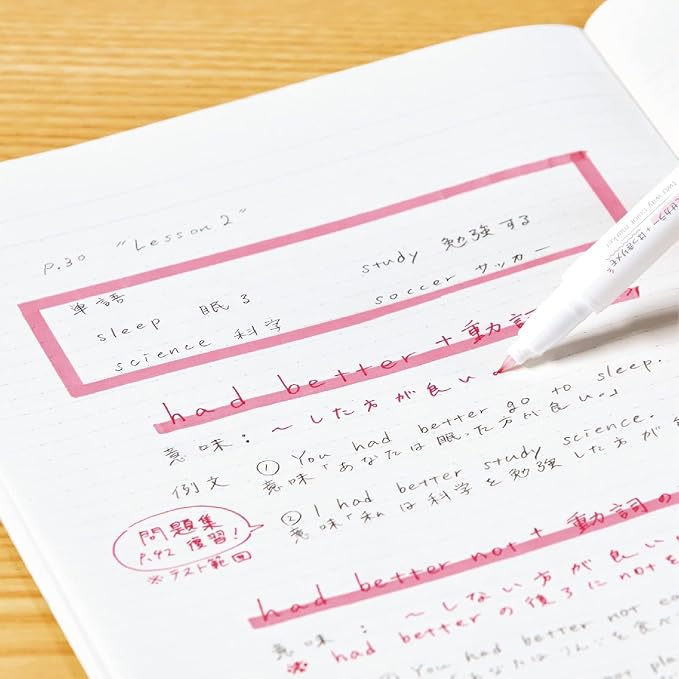 P.30 "Lesson 2"
単語
sleep 眠る study 勉強する
science 科学 soccer サッカー
had better + 動詞
意味: 〜した方が良い。
例文 ① You had better go to sleep.
意味「あなたは眠った方が良い。」
② I had better study science.
意味「私は科学を勉強した方が
問題集
P.42 復習!
※テスト範囲
had better not + 動詞の
意味: 〜しない方が良い
※ had better の後ろに notを
① You had better not
two way color marker